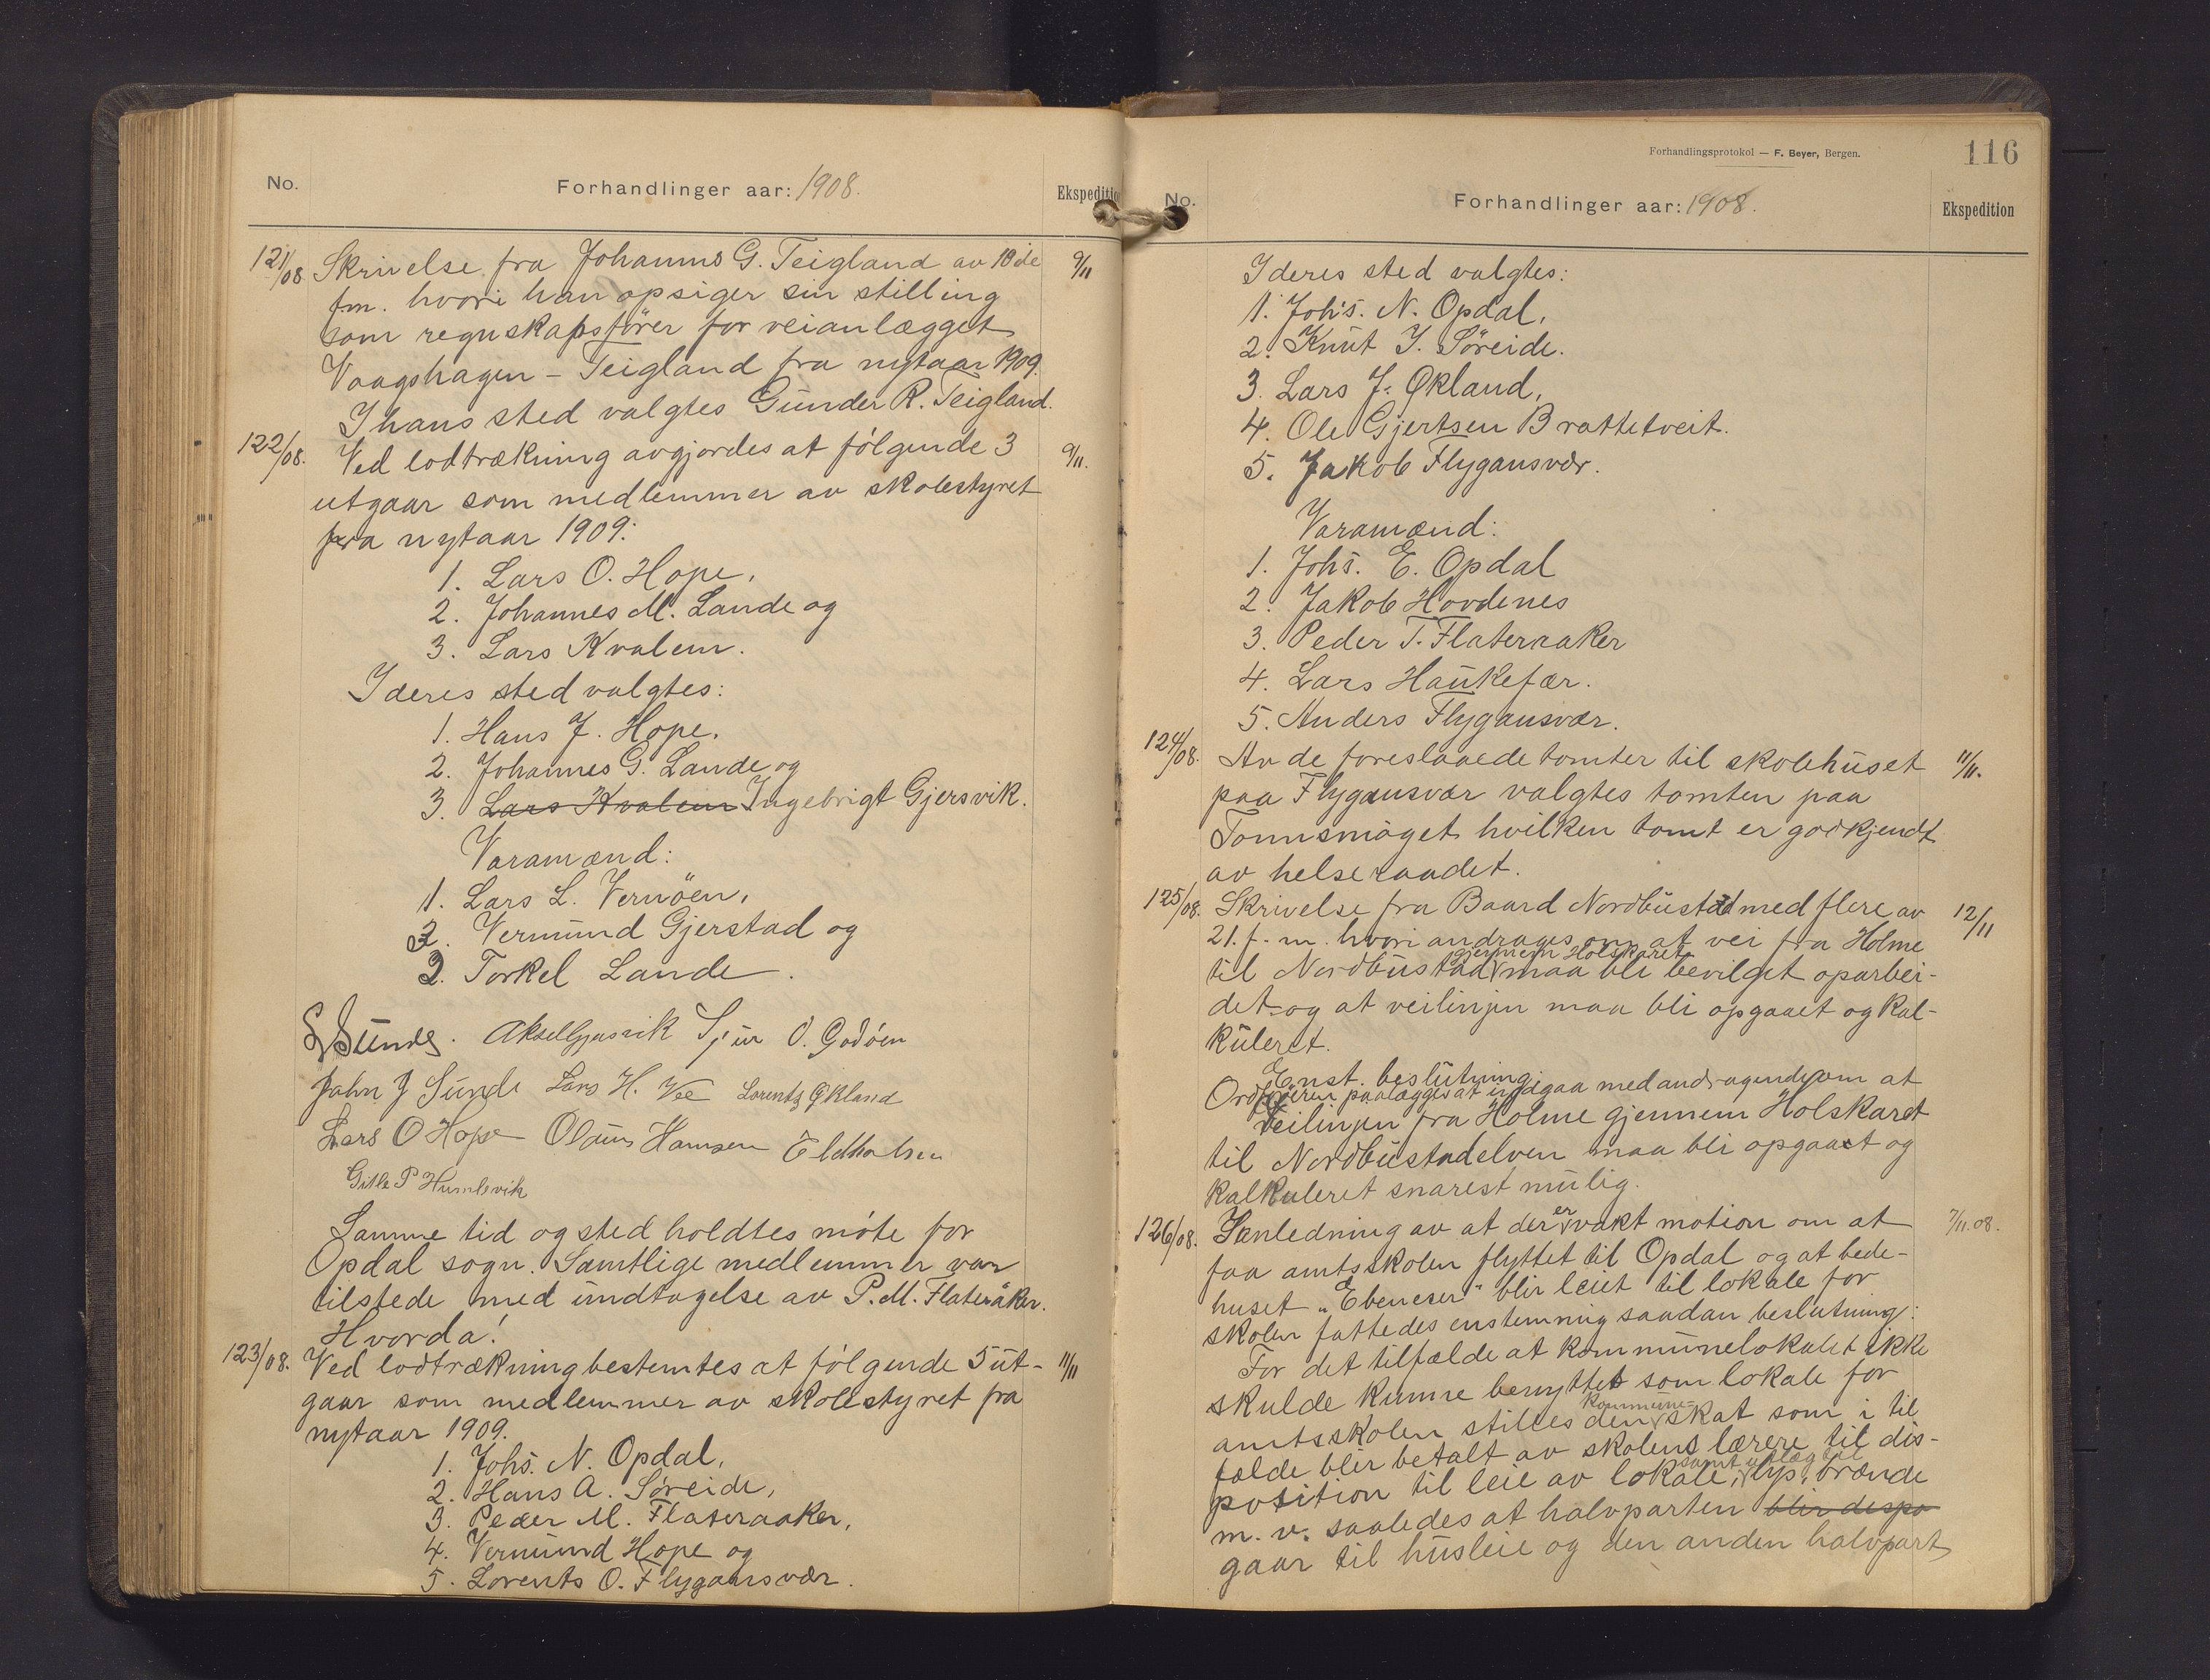 No.
Forhandlinger aar: 1908.
Ekspeditio
121/08 Skrivelse fra Johannes G. Teigland av 18de 9/11
f.m. hvori han opsiger sin stilling
som regnskapsfører for veianlægget
Vaagshagen - Teigland fra nytaar 1909.
I hans sted valgtes Gunder R. Teigland.
122/08. Ved lodtrækning avgjordes at følgende 3 9/11.
utgaar som medlemmer av skolestyret
fra nytaar 1909:
1. Lars O. Hope,
2. Johannes M. Lande og
3. Lars Kvalem.
I deres sted valgtes:
1. Hans J. Hope,
2. Johannes G. Lande og
3. Lars Kvalem Ingebrigt Gjersvik.
Varamænd:
1. Lars L. Vernöen,
2. Vermund Gjerstad og
3. Torkel Lande.
Sunde. Aksel Gjersvik Sjur O. Godöen
John J Sunde Lars H. Vee Lorentz Økland
Lars O Hope Olaus Hansen
Gitle P Humlevik
Samme tid og sted holdtes møte for
Opdal sogn. Samtlige medlemmer var
tilstede med undtagelse av P. M. Flateråker.
Hvorda!
123/08. Ved lodtrækning bestemtes at følgende 5 ut- 11/11
gaar som medlemmer av skolestyret fra
nytaar 1909.
1. Johs. N. Opdal,
2. Hans A. Søreide,
3. Peder M. Flateraaker,
4. Vermund Hope og
5. Lorents O. Flygansvær.
Forhandlingsprotokol — F. Beyer, Bergen.
116
No.
Forhandlinger aar: 1908.
Ekspedition
I deres sted valgtes:
1. Johs. N. Opdal,
2. Knut J. Söreide.
3. Lars J. Økland,
4. Ole Gjertsen Brattetveit.
5. Jakob Flygansvær.
Varamænd:
1. Johs. E. Opdal
2. Jakob Hovdenes
3. Peder T. Flateraaker
4. Lars Haukefær.
5. Anders Flygansvær.
124/08. Av de foreslaaede tomter til skolehuset 11/11.
paa Flygansvær valgtes tomten paa
Tonnsmöget hvilken tomt er godkjendt
av helseraadet.
125/08. Skrivelse fra Baard Nordbustad med flere av 12/11
21. f. m. hvori andrages om at vei fra Holme
gjennem Holskaret
til Nordbustad maa bli bevilget oparbei-
det og at veilinjen maa bli opgaaet og kal-
kuleret.
Enst. beslutning:
Ordføreren paalægges at indgaa med andragende om at
veilinjen fra Holme gjennem Holskaret
til Nordbustadelven maa bli opgaaet og
kalkuleret snarest mulig.
126/08. I anledning av at der er vakt motion om at 7/11.08.
faa amtsskolen flyttet til Opdal og at bede-
huset "Ebeneser" blir leiet til lokale for
skolen fattedes enstemmig saadan beslutning:
For det tilfælde at kommunelokalet ikke
skulde kunne benyttes som lokale for
amtsskolen stilles den kommune-skat som i til
fælde blir betalt av skolens lærere til dis-
position til leie av lokale, samt utlæg til lys, brænde
m. v. saaledes at halvparten blir dispo
gaar til husleie og den anden halvpart